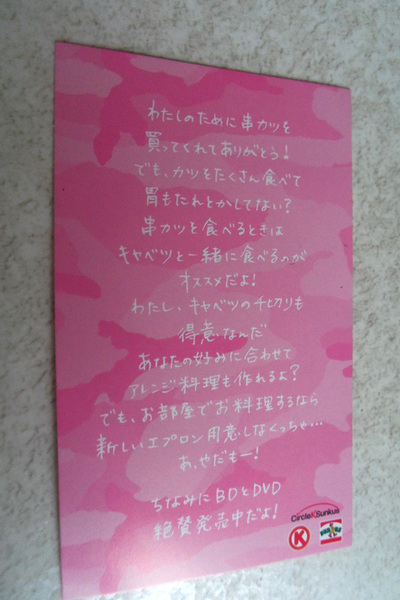 わたしのために串カツを
買ってくれてありがとう!
でも、カツをたくさん食べて
胃もたれとかしてない?
串カツを食べるときは
キャベツと一緒に食べるのが
オススメだよ!
わたし、キャベツの千切りも
得意なんだ
あなたの好みに合わせて
アレンジ料理も作れるよ?
でも、お部屋でお料理するなら
新しいエプロン用意しなくっちゃ…
あ、やだもー!
ちなみにBDとDVD
絶賛発売中だよ!
CircleKSunkus
K